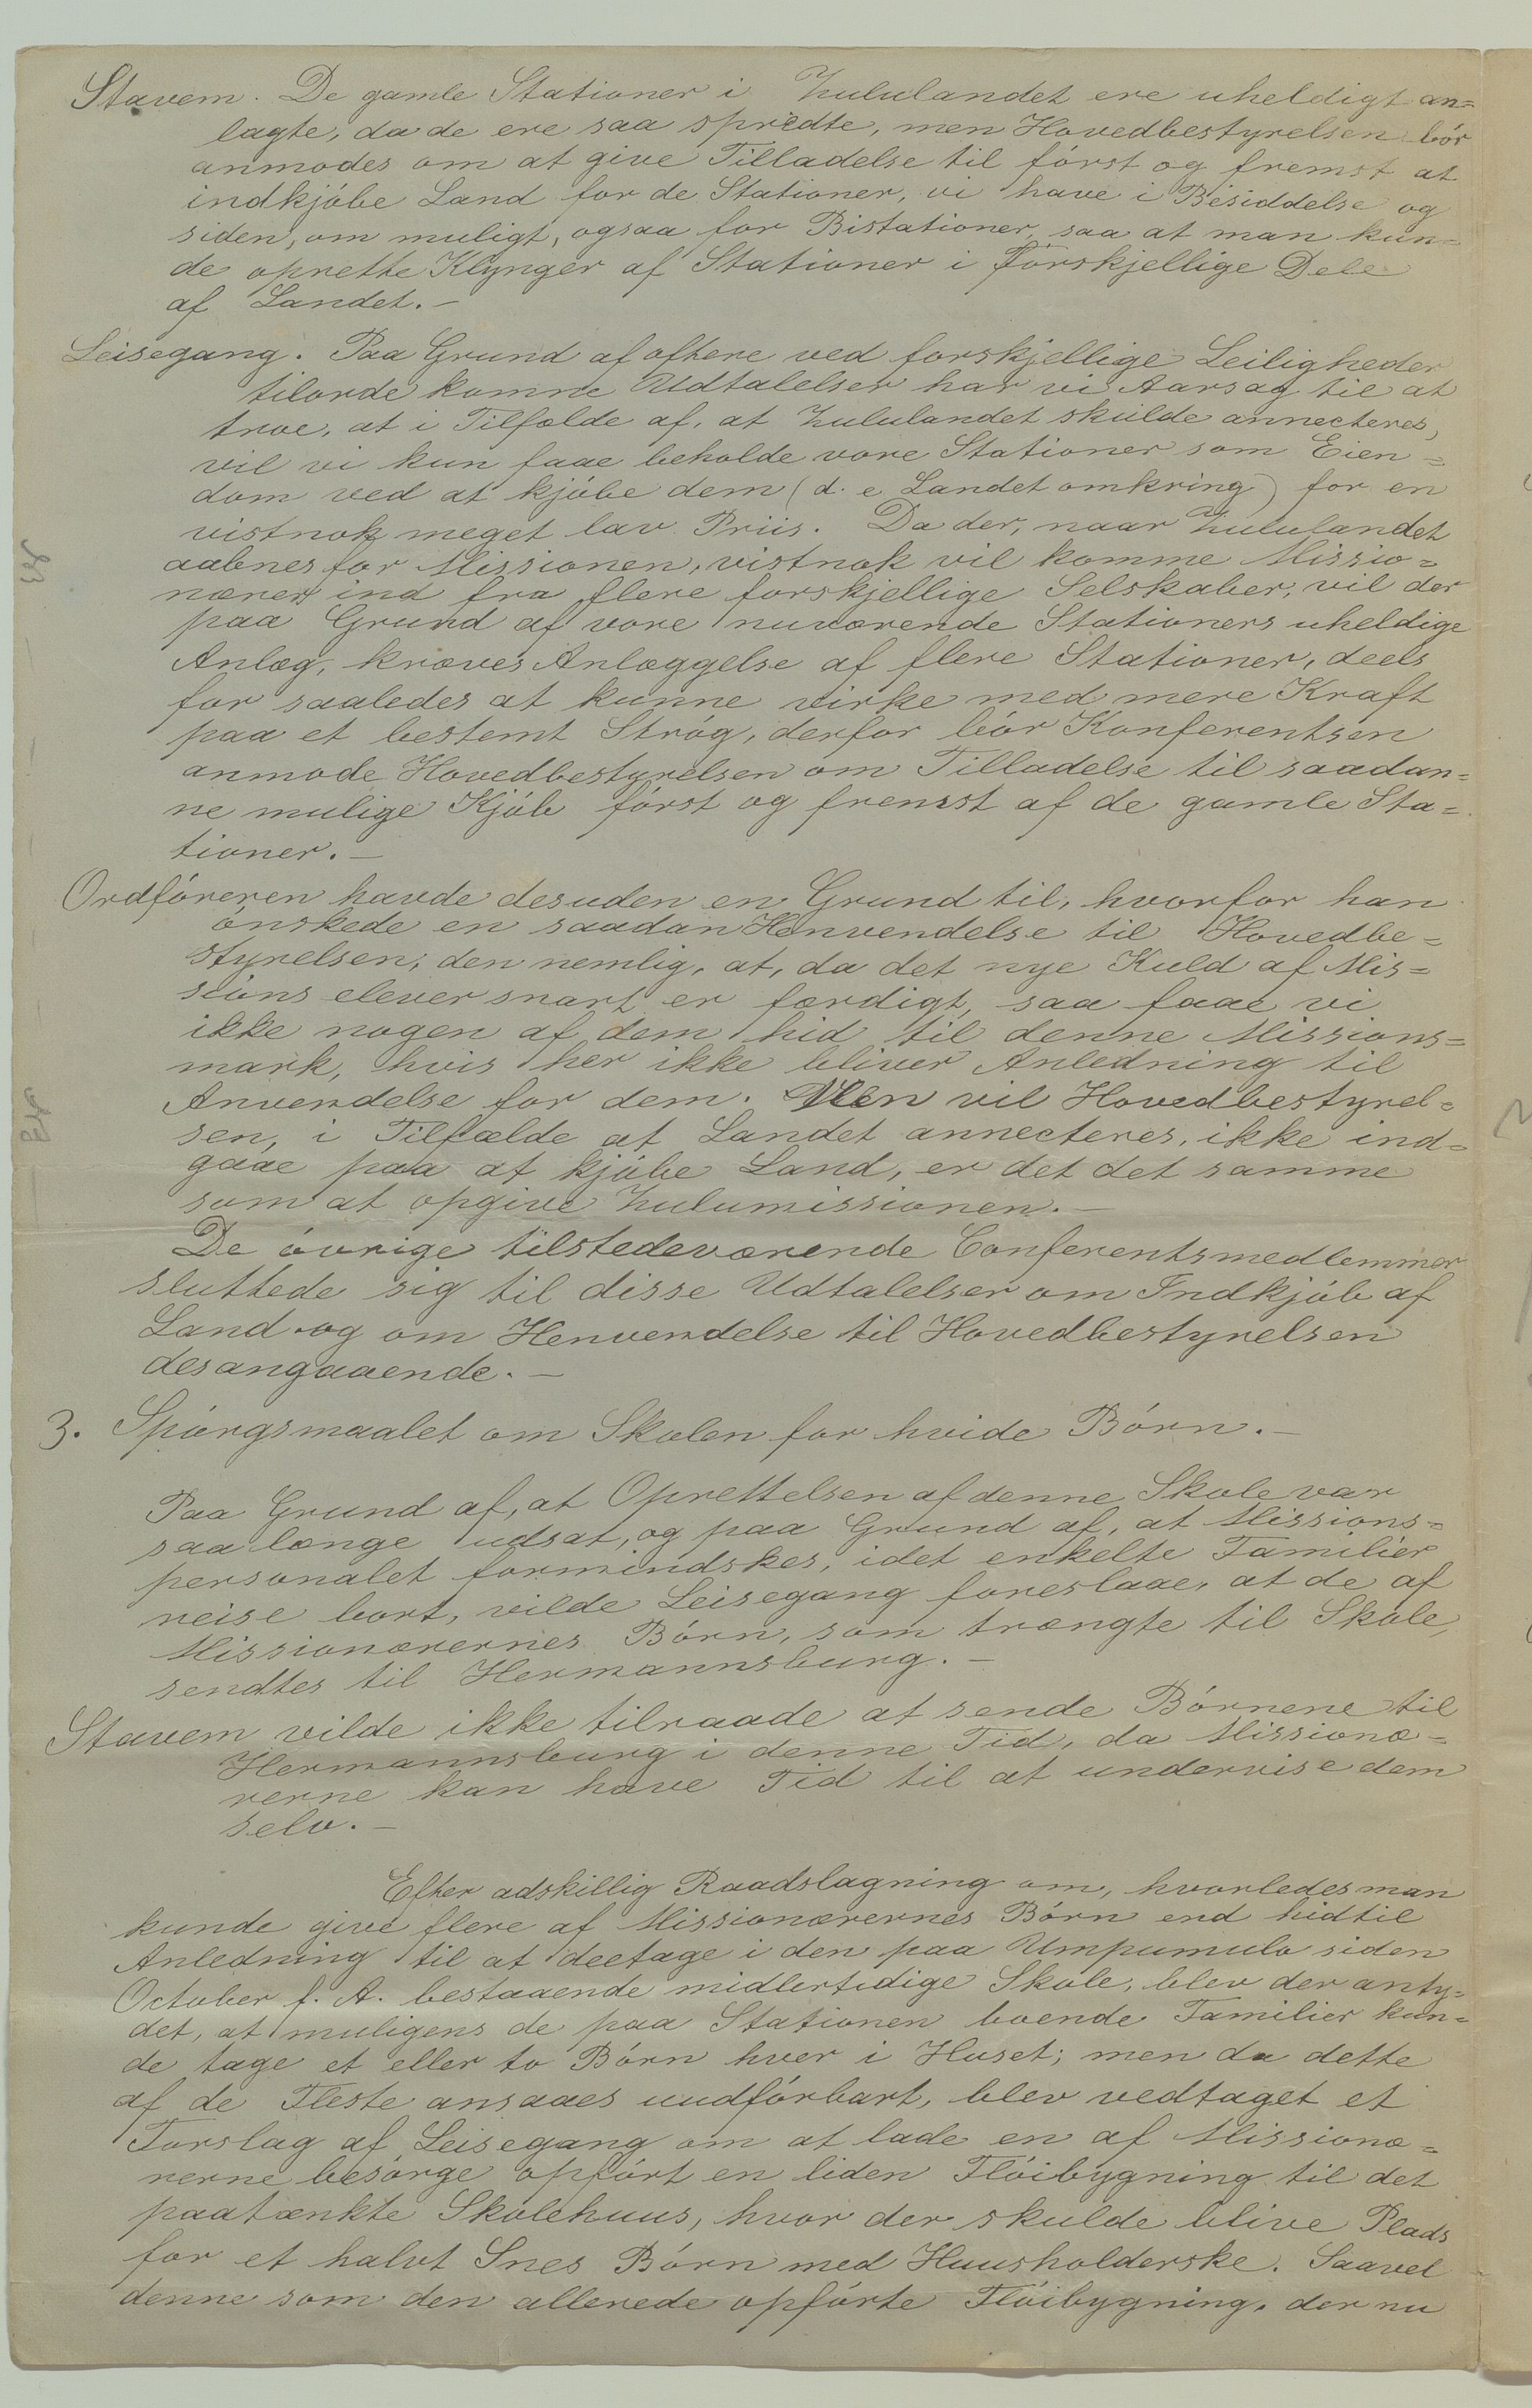 Stavem. De gamle Stationer i Zululandet ere uheldigt an=
lagte, da de ere saa spredte, men Hovedbestyrelsen bór
anmodes om at give Tilladelse til fórst og fremst at
indkjóbe Land for de Stationer, vi have i Besiddelse og
siden, om muligt, ogsaa for Bistationer, saa at man kun=
de oprette Klynger af Stationer i forskjellige Dele
af Landet.—
Leisegang. Paa Grund af oftere ved forskjellige Leiligheder
tilorde komne Udtalelser har vi Aarsag til at
troe, at i Tilfælde af, at Zululandet skulde annecteres,
vil vi kun faae beholde vore Stationer som Eien=
dom ved at kjóbe dem (d. e. Landet omkring) for en
vistnok meget lav Priis. Da der, naar Zululandet
aabnes for Missionen, vistnok vil komme Missio=
nærer ind fra flere forskjellige Selskaber, vil der
paa Grund af vore nuværende Stationers uheldige
Anlæg, kræves Anlæggelse af flere Stationer, deels
for saaledes at kunne virke med mere Kraft
paa et bestemt Stróg, derfor bór Konferentsen
anmode Hovedbestyrelsen om Tilladelse til saadan=
ne mulige Kjób fórst og fremst af de gamle Sta=
tioner.—
Ordfóreren havde desuden en Grund til, hvorfor han
ónskede en saadan Henvendelse til Hovedbe=
styrelsen, den nemlig, at, da det nye Kuld af Mis=
sions elever snart er færdigt, saa faae vi
ikke nogen af dem hid til denne Missions=
mark, hvis her ikke bliver Anledning til
Anvendelse for dem. Men vil Hovedbestyrel=
sen, i Tilfælde at Landet annecteres, ikke ind=
gaae paa at kjóbe Land, er det det samme
som at opgive Zulumissionen.—
De óvrige tilstedeværende Conferentsmedlemmer
sluttede sig til disse Udtalelser om Indkjób af
Land og om Henvendelse til Hovedbestyrelsen
desangaaende.—
3. Spórgsmaalet om Skolen for hvide Bórn.—
Paa Grund af, at Oprettelsen af denne Skole var
saa længe udsat, og paa Grund af, at Missions=
personalet formindskes, idet enkelte Familier
reise bort, vilde Leisegang foreslaae, at de af
Missionærernes Bórn, som trængte til Skole,
sendtes til Hermannsburg.—
Stavem vilde ikke tilraade at sende Bórnene til
Hermannsburg i denne Tid, da Missionæ=
rerne kan have Tid til at undervise dem
selv.—
Efter adskillig Raadslagning om, hvorledes man
kunde give flere af Missionærernes Bórn end hidtil
Anledning til at deeltage i den paa Umpumulo siden
October f. A. bestaaende midlertidige Skole, blev der anty=
det, at muligens de paa Stationen boende Familier kun=
de tage et eller to Bórn hver i Huset; men da dette
af de Fleste ansaaes uudfórbart, blev vedtaget et
Forslag af Leisegang om at lade en af Missionæ=
rerne besórge opfórt en liden Flóibygning til det
paatænkte Skolehuus, hvor der skulde blive Plads
for et halvt Snes Bórn med Huusholderske. Saavel
denne som den allerede opfórte Flóibygning, der nu